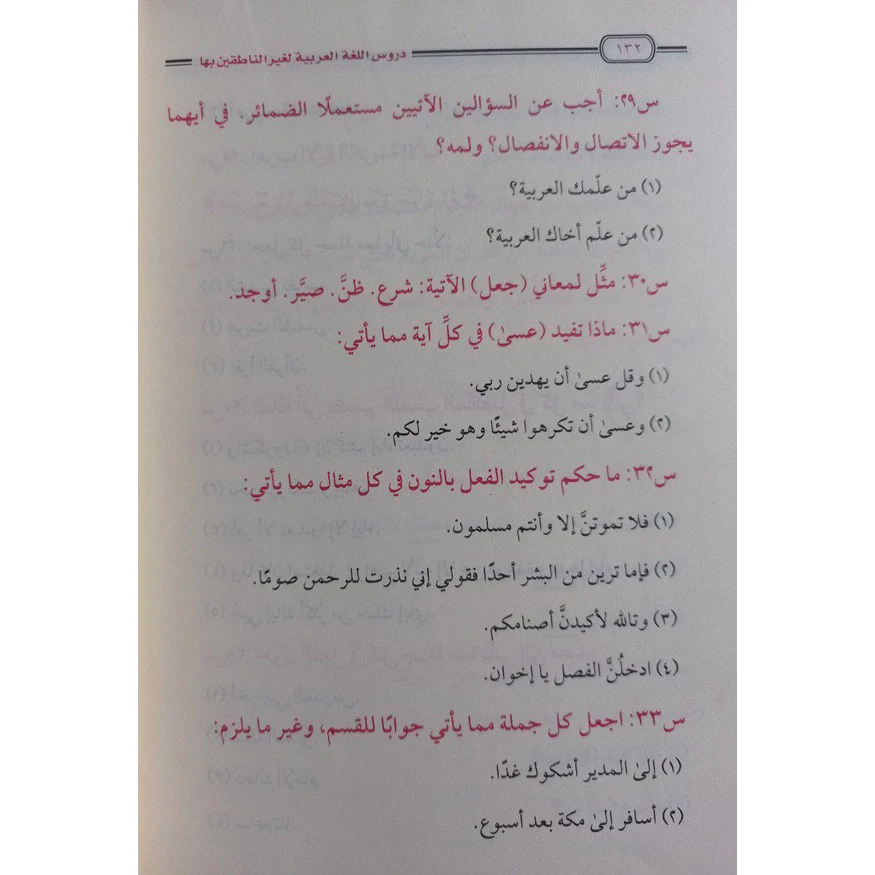 ١٣٢
دروس اللغة العربية لغير الناطقين بها
س٢٩: أجب عن السؤالين الآتيين مستعملًا الضمائر، في أيهما
يجوز الاتصال والانفصال؟ ولمه؟
(١) من علّمك العربية؟
(٢) من علّم أخاك العربية؟
س٣٠: مثِّل لمعاني (جعل) الآتية: شرع. ظنَّ. صيَّر. أوجد.
س٣١: ماذا تفيد (عسىٰ) في كلِّ آية مما يأتي:
(١) وقل عسىٰ أن يهدين ربي.
(٢) وعسىٰ أن تكرهوا شيئًا وهو خير لكم.
س٣٢: ما حكم توكيد الفعل بالنون في كل مثال مما يأتي:
(١) فلا تموتنَّ إلا وأنتم مسلمون.
(٢) فإما ترين من البشر أحدًا فقولي إني نذرت للرحمن صومًا.
(٣) وتالله لأكيدنَّ أصنامكم.
(٤) ادخلُنَّ الفصل يا إخوان.
س٣٣: اجعل كل جملة مما يأتي جوابًا للقسم، وغير ما يلزم:
(١) إلىٰ المدير أشكوك غدًا.
(٢) أسافر إلىٰ مكة بعد أسبوع.